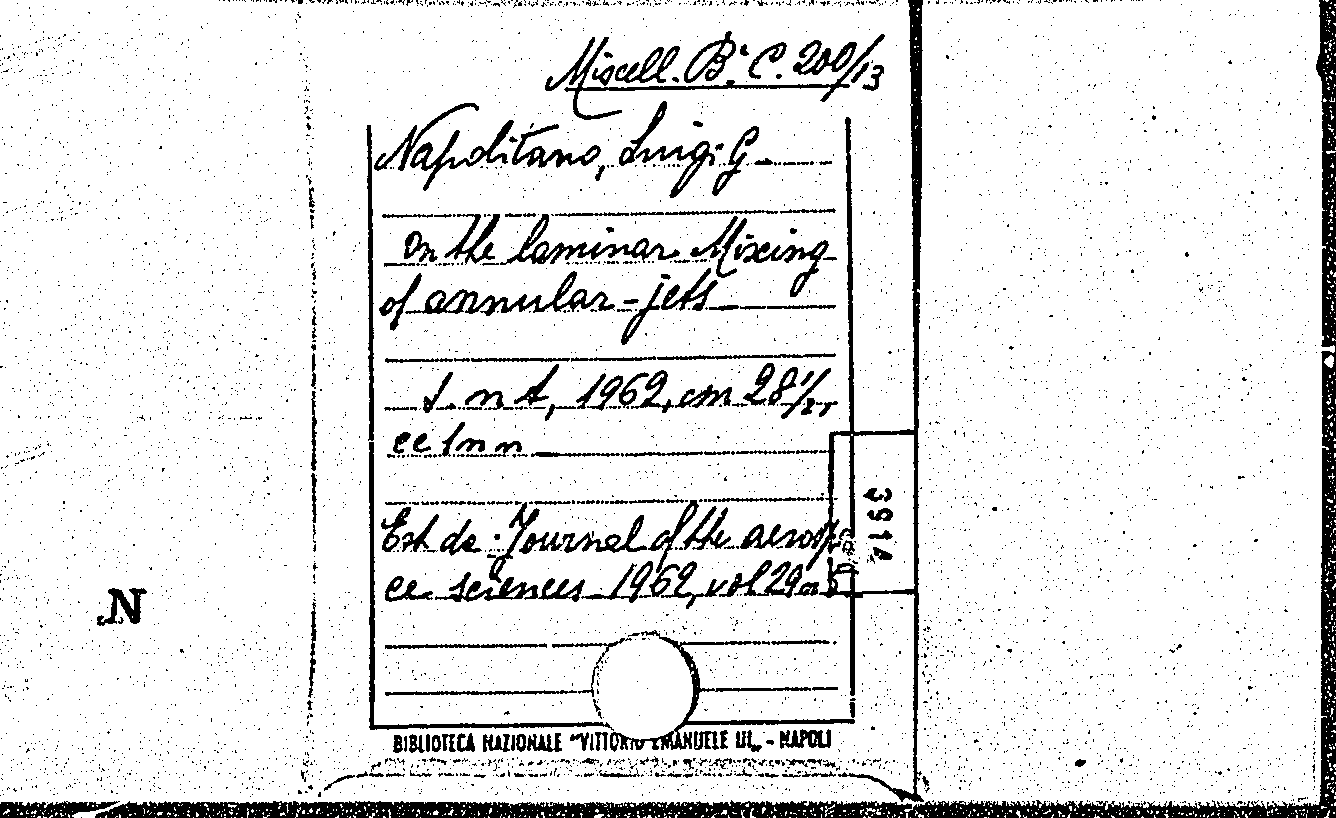 Miscell. Bª C. 200/13
Napolitano, Luigi G.
On the laminar Mixing
of annular-jets
s. n t, 1962, cm 28 1/2,
Est da: Journal of the aerospa
ce sciences 1962, vol 29
3914
N
BIBLIOTECA NAZIONALE "VITTORIO EMANUELE III„ - NAPOLI